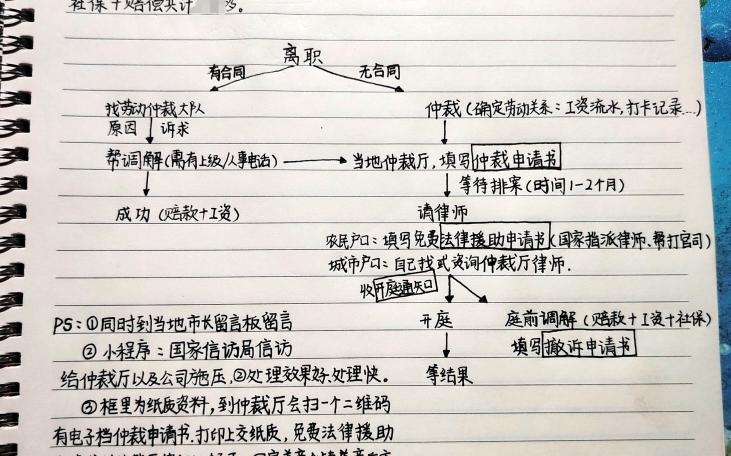 社保+赔偿共计 多。
离职
有合同
无合同
找劳动仲裁大队
仲裁(确定劳动关系:工资流水,打卡记录...)
原因
诉求
帮调解(需有上级/人事电话)
当地仲裁厅,填写仲裁申请书
等待排案(时间1-2个月)
成功(赔款+工资)
请律师
农民户口:填写免费法律援助申请书(国家指派律师、帮打官司)
城市户口:自己找或咨询仲裁厅律师.
收开庭通知
PS:①同时到当地市长留言板留言
开庭
庭前调解(赔款+工资+社保)
②小程序:国家信访局信访
填写撤诉申请书
给仲裁厅以及公司施压,②处理效果好、处理快。
等结果
③框里为纸质资料,到仲裁厅会扫一个二维码
有电子档仲裁申请书.打印上交纸质,免费法律援助